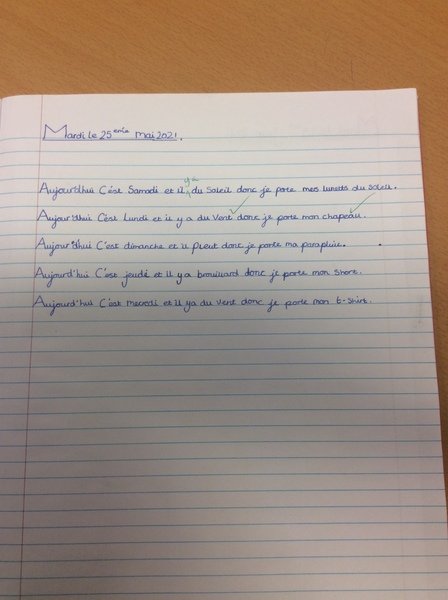 Mardi le 25eme Mai 2021.
ya
Aujourd'hui C'est Samedi et il du Soleil donc je porte mes lunetts du Soleil.
Aujour'dhui C'est Lundi et il y a du Vent donc je porte mon chapeau.
Aujour'dhui C'est dimanche et il pleut donc je porte ma parapluie.
Aujourd'hui C'est jeudi et il y a brouillard donc je porte mon Short.
Aujourd'hui C'est mecredi et il ya du vent donc je porte mon t-shirt.